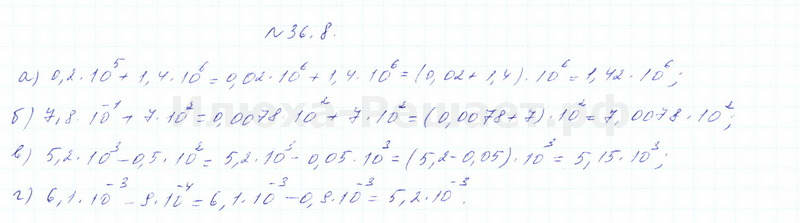 №36.8.
а) 0,2·10⁵+1,4·10⁶=0,02·10⁶+1,4·10⁶=(0,02+1,4)·10⁶=1,42·10⁶;
б) 7,8·10⁻¹+7·10²=0,0078·10²+7·10²=(0,0078+7)·10²=7,0078·10²;
в) 5,2·10³-0,5·10²=5,2·10³-0,05·10³=(5,2-0,05)·10³=5,15·10³;
г) 6,1·10⁻³-9·10⁻⁴=6,1·10⁻³-0,9·10⁻³=5,2·10⁻³.
Илюха-Решает.рф